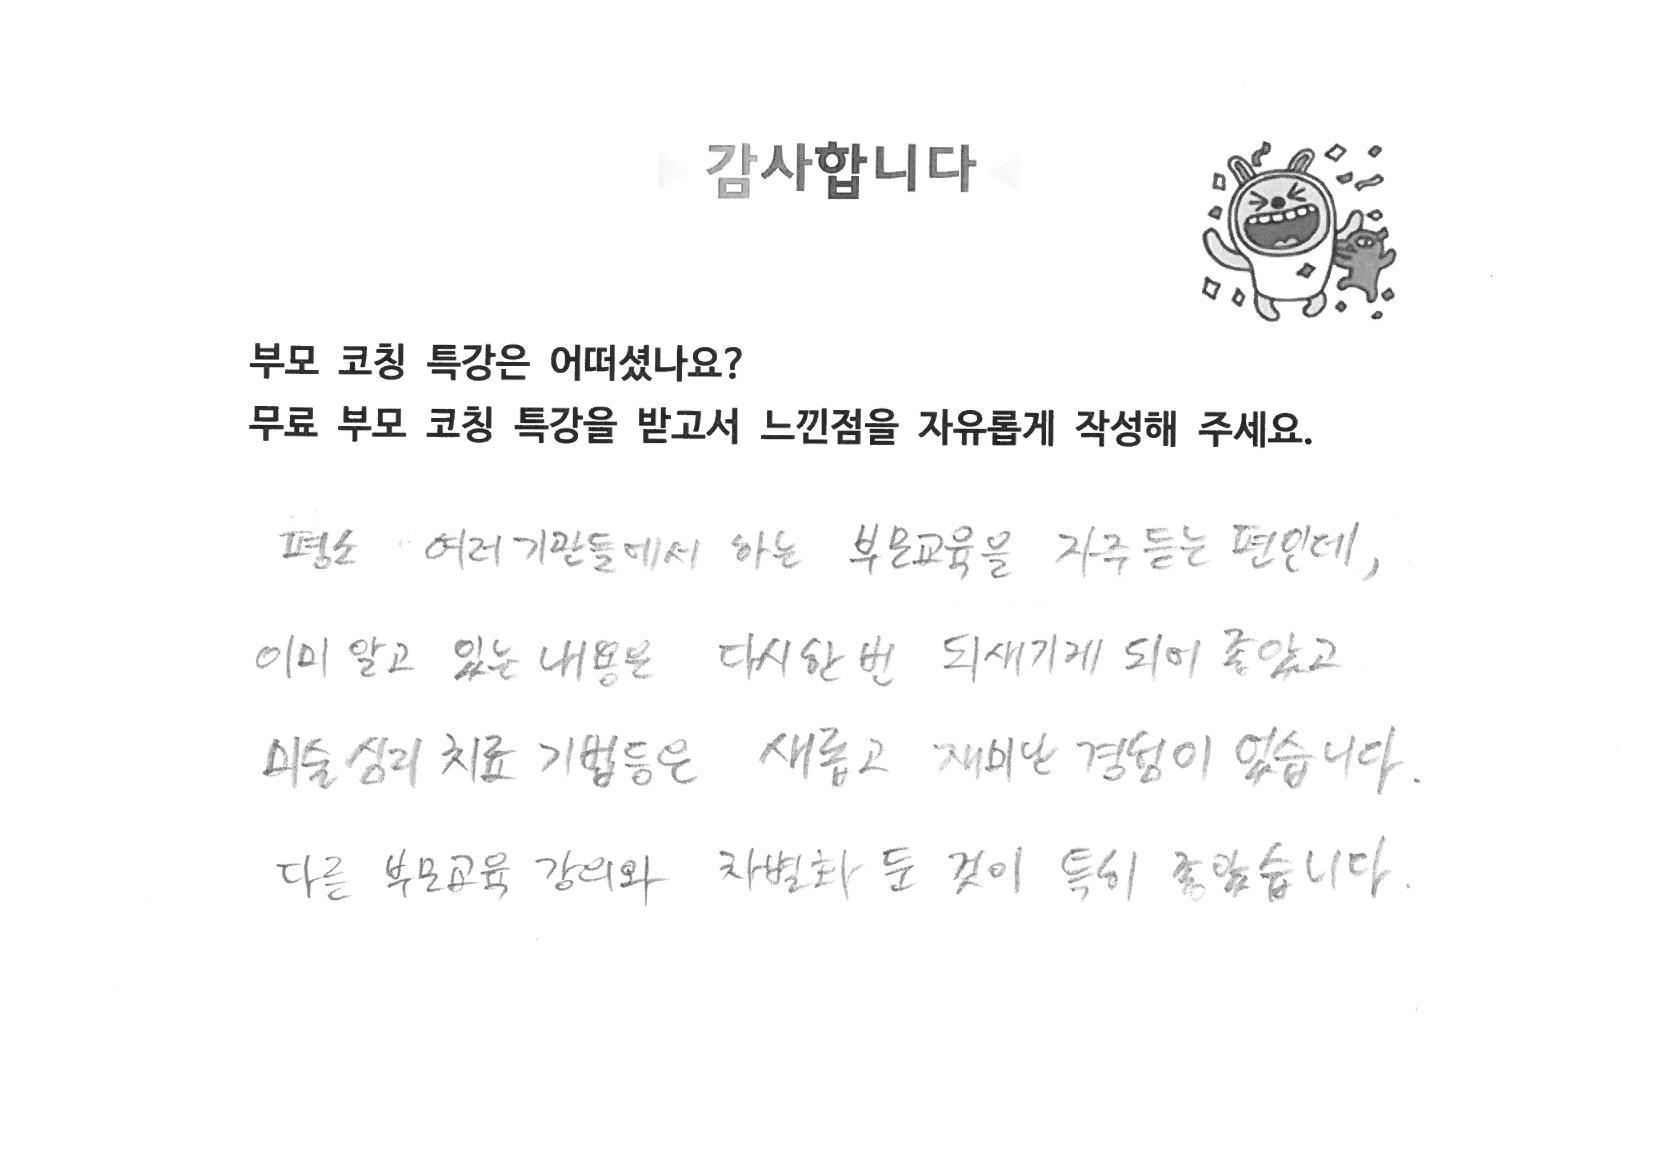 감사합니다
부모 코칭 특강은 어떠셨나요?
무료 부모 코칭 특강을 받고서 느낀점을 자유롭게 작성해 주세요.
평소 여러기관들에서 하는 부모교육을 자주듣는 편인데,
이미 알고 있는 내용은 다시한번 되새기게 되어 좋았고
미술심리치료 기법등은 새롭고 재미난 경험이 었습니다.
다른 부모교육 강의와 차별화 둔 것이 특히 좋았습니다.